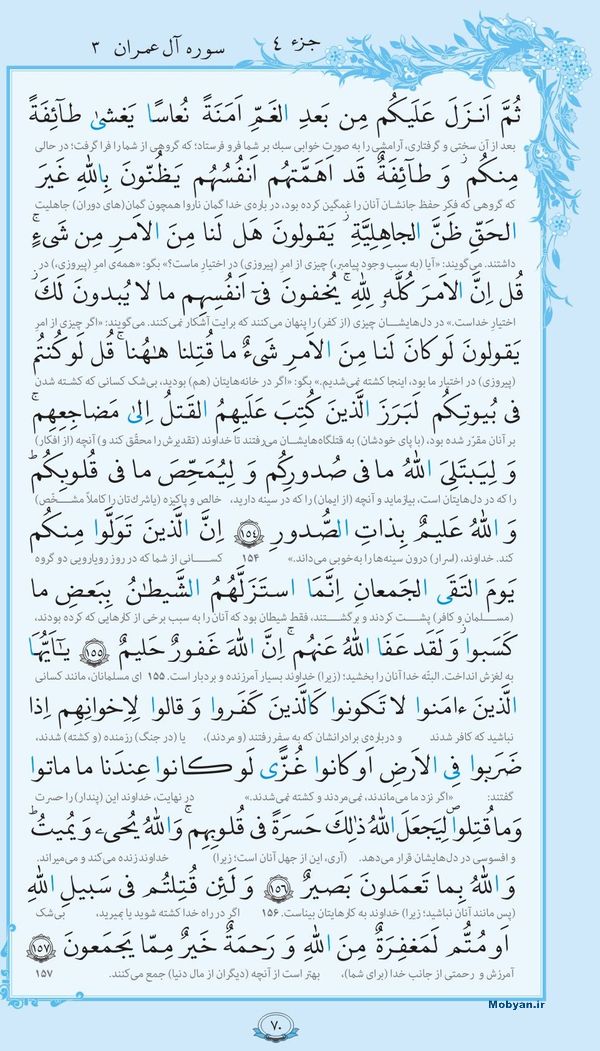 سوره آل عمران ۳
جزء ۴
ثُمَّ اَنزَلَ عَلَيكُم مِن بَعدِ الغَمِّ اَمَنَةً نُعاسًا يَغشىٰ طآئِفَةً
بعد از آن سختی و گرفتاری، آرامشی را به صورت خوابی سبک بر شما فرو فرستاد؛ که گروهی از شما را فرا گرفت؛ در حالی
مِنكُم ۖ وَ طآئِفَةٌ قَد اَهَمَّتهُم اَنفُسُهُم يَظُنّونَ بِاللهِ غَيرَ
که گروهی که فکر حفظ جانشان آنان را غمگین کرده بود، در باره‌ی خدا گمان ناروا همچون گمان(های دوران) جاهلیت
الحَقِّ ظَنَّ الجاهِلِيَّةِ ۖ يَقولونَ هَل لَنا مِنَ الاَمرِ مِن شَىءٍ ۗ
داشتند. می‌گویند: «آیا (به سبب وجود پیامبر،) چیزی از امرِ (پیروزی) در اختیارِ ماست؟» بگو: «همه‌ی امرِ (پیروزی،) در
قُل اِنَّ الاَمرَ كُلَّهُ لِلّٰهِ ۗ يُخفونَ فى اَنفُسِهِم ما لا يُبدونَ لَكَ ۖ
اختیارِ خداست.» در دل‌هایشان چیزی (از کفر) را پنهان می‌کنند که برایت آشکار نمی‌کنند. می‌گویند: «اگر چیزی از امرِ
يَقولونَ لَو كانَ لَنا مِنَ الاَمرِ شَىءٌ ما قُتِلنا هٰهُنا ۗ قُل لَو كُنتُم
(پیروزی) در اختیار ما بود، اینجا کشته نمی‌شدیم.» بگو: «اگر در خانه‌هایتان (هم) بودید، بی‌شک کسانی که کشته شدن
فى بُيوتِكُم لَبَرَزَ الَّذينَ كُتِبَ عَلَيهِمُ القَتلُ اِلىٰ مَضاجِعِهِم ۖ
بر آنان مقرّر شده بود، (با پای خودشان) به قتلگاه‌هایشان می‌رفتند تا خداوند (تقدیرش را محقّق کند و) آنچه (از افکار)
وَ لِيَبتَلِىَ اللهُ ما فى صُدورِكُم وَ لِيُمَحِّصَ ما فى قُلوبِكُم ۗ
را که در دل‌هایتان است، بیازماید و آنچه (از ایمان) را که در سینه دارید، خالص و پاکیزه (یا شرک‌تان را کاملاً مشخّص)
وَ اللهُ عَليمٌ بِذاتِ الصُّدورِ ١٥٤ اِنَّ الَّذينَ تَوَلَّوا مِنكُم
کند. خداوند، (اسرارِ) درون سینه‌ها را به‌خوبی می‌داند.» ۱۵۴ کسانی از شما که در روز رویارویی دو گروه
يَومَ التَقَى الجَمعانِ اِنَّمَا استَزَلَّهُمُ الشَّيطٰنُ بِبَعضِ ما
(مسلمان و کافر) پشت کردند و برگشتند، فقط شیطان بود که آنان را به سبب برخی از کارهایی که کرده بودند،
كَسَبوا ۖ وَ لَقَد عَفَا اللهُ عَنهُم ۗ اِنَّ اللهَ غَفورٌ حَليمٌ ١٥٥ يٰاَيُّهَا
به لغزش انداخت. البتّه خدا آنان را بخشید؛ (زیرا) خداوند بسیار آمرزنده و بردبار است. ۱۵۵ ای مسلمانان، مانند کسانی
الَّذينَ ءامَنوا لا تَكونوا كَالَّذينَ كَفَروا وَ قالوا لِاِخوانِهِم اِذا
نباشید که کافر شدند و درباره‌ی برادرانشان که به سفر رفتند (و مردند)،
ضَرَبوا فِى الاَرضِ اَو كانوا غُزًّى لَو كانوا عِندَنا ما ماتوا
یا (در جنگ) رزمنده (و کشته) شدند، گفتند: «اگر نزد ما می‌ماندند، نمی‌مردند و کشته نمی‌شدند.»
وَ ما قُتِلوا لِيَجعَلَ اللهُ ذٰلِكَ حَسرَةً فى قُلوبِهِم ۗ وَاللهُ يُحىۦ وَ يُميتُ ۗ
در نهایت، خداوند این (پندار) را حسرت و افسوسی در دل‌هایشان قرار می‌دهد. (آری، این از جهل آنان است؛ زیرا) خداوند زنده می‌کند و می‌میراند.
وَ اللهُ بِما تَعمَلونَ بَصيرٌ ١٥٦ وَ لَئِن قُتِلتُم فى سَبيلِ اللهِ
(پس مانند آنان نباشید؛ زیرا) خداوند به کارهایتان بیناست. ۱۵۶ اگر در راه خدا کشته شوید یا بمیرید، بی‌شک
اَو مُتُّم لَمَغفِرَةٌ مِنَ اللهِ وَ رَحمَةٌ خَيرٌ مِمّا يَجمَعونَ ١٥٧
آمرزش و رحمتی از جانب خدا (برای شما)، بهتر است از آنچه (دیگران از مال دنیا) جمع می‌کنند. ۱۵۷
۷۰
Mobyan.ir